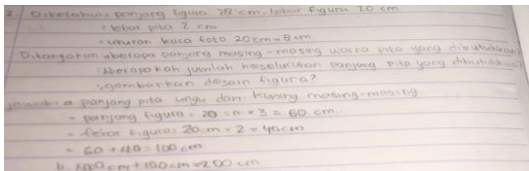 2. Diketahui: panjang figura 28 cm, lebar figura 20 cm
: lebar pita 2 cm
: ukuran kaca foto 20 cm × 8 cm
Ditanyakan: berapa panjang masing-masing warna pita yang dibutuhkan?
: berapakah jumlah keseluruhan panjang pita yang dibutuhkan?
: gambarkan desain figura?
Jawab: a panjang pita ungu dan kuning masing-masing
= panjang figura = 20 cm × 3 = 60 cm
= lebar figura: 20 cm × 2 = 40 cm
= 60 + 40 = 100 cm
b. 100 cm + 100 cm = 200 cm